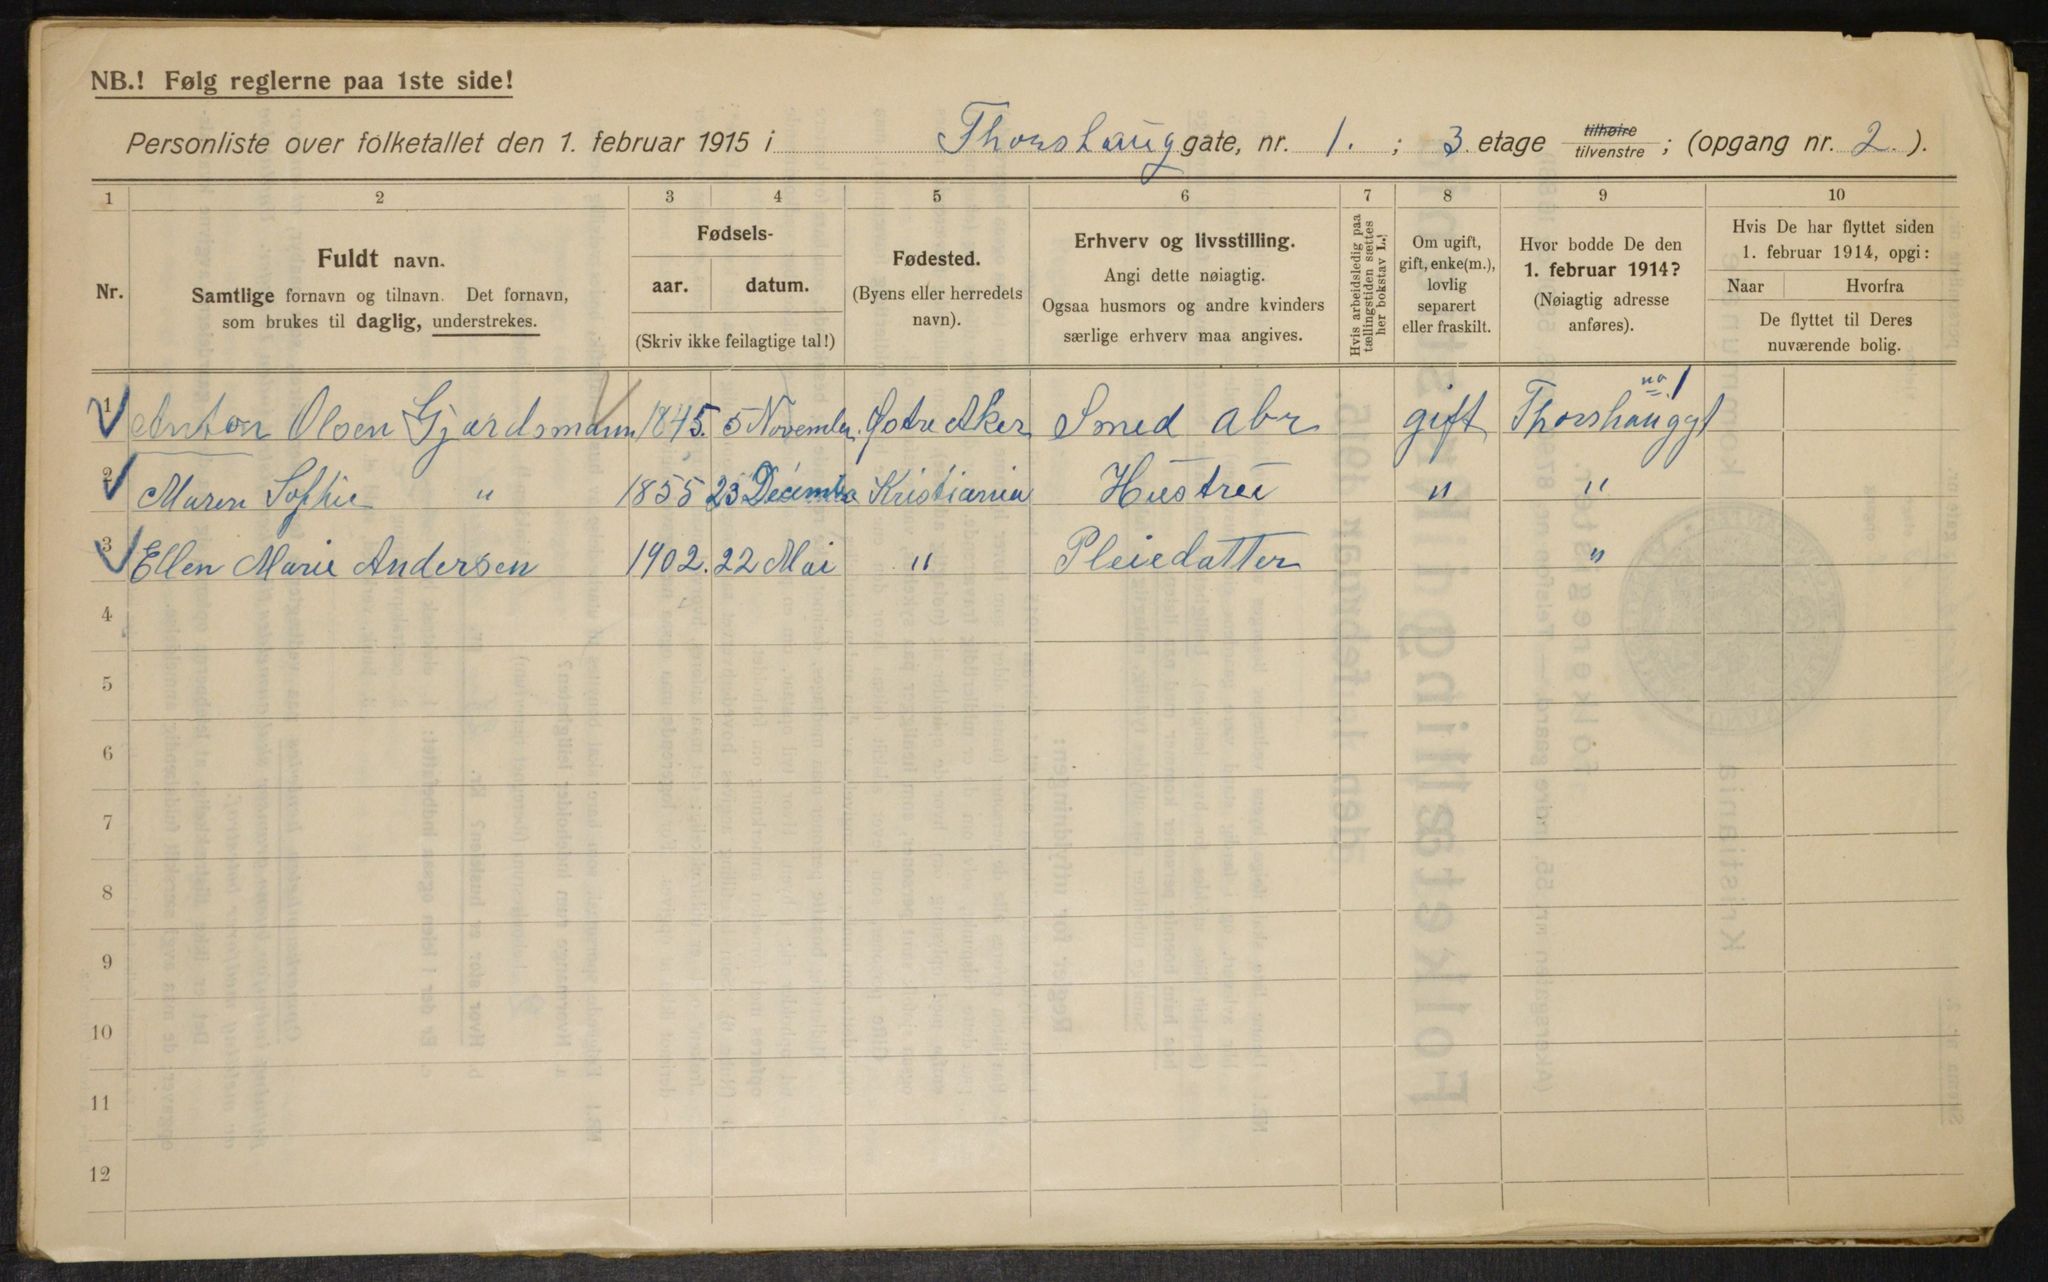 NB.! Følg reglerne paa 1ste side!
Personliste over folketallet den 1. februar 1915 i Thorshaug gate, nr. 1. ; 3. etage tilhøire tilvenstre ; (opgang nr. 2.).
1 2 3 4 5 6 7 8 9 10
Nr.
Fuldt navn.
Samtlige fornavn og tilnavn. Det fornavn,
som brukes til daglig, understrekes.
Fødsels-
aar. datum.
(Skriv ikke feilagtige tal!)
Fødested.
(Byens eller herredets
navn).
Erhverv og livsstilling.
Angi dette nøiagtig.
Ogsaa husmors og andre kvinders
særlige erhverv maa angives.
Hvis arbeidsledig paa
tællingstiden sættes
her bokstav L.!
Om ugift,
gift, enke(m.),
lovlig
separert
eller fraskilt.
Hvor bodde De den
1. februar 1914?
(Nøiagtig adresse
anføres).
Hvis De har flyttet siden
1. februar 1914, opgi:
Naar Hvorfra
De flyttet til Deres
nuværende bolig.
1 Anton Olsen Gjærdsmann 1845. 5 November. Østre Aker Smed abr gift Thorshauggt no 1
2 Maren Sofie " 1855 23 December Kristiania Hustru " "
3 Ellen Marie Andersen 1902. 22 Mai " Pleiedatter "
4
5
6
7
8
9
10
11
12